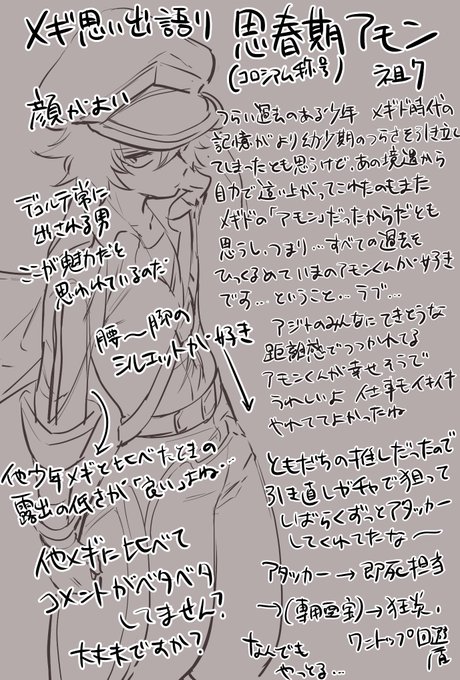 メギド思い出語り
思春期アモン
(コロシアム称号)
祖7
顔がよい
つらい過去のある少年 メギド時代の
記憶がより幼少期のつらさを引き立し
てしまったとも思うけど、あの境遇から
自力で這い上がってこれたのもまた
メギドの「アモン」だったからだとも
思うし、つまり…すべての過去を
ひっくるめていまのアモンくんが好き
です…ということ…ラブ…
デコルテ常に
出される男
ここが魅力だと
思われているのだ
腰〜脚の
シルエットが好き
アジトのみんなにてきとうな
距離感でつつかれてる
アモンくんが幸せそうで
うれしいよ 仕事もイキイキ
やれててよかったね
他少年メギと比べたときの
露出の低さが「良い」よね…
ともだちの推しだったので
引き直しガチャで狙って
しばらくずっとアタッカー
してくれてたな〜
他メギに比べて
コメントがベタベタ
してません?
大丈夫ですか?
アタッカー→即死担当
→(専用霊宝)→狂炎、
ワントップ回避盾
なんでも
やっとる…